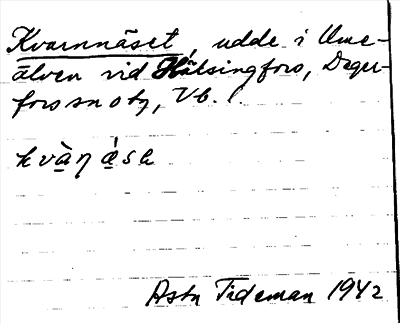 Kvarnnäset, udde i Ume-
älven vid Hälsingfors, Deger-
fors sn o ty, Vb. l.
kvàŋ ǽsa
Asta Tideman 1942